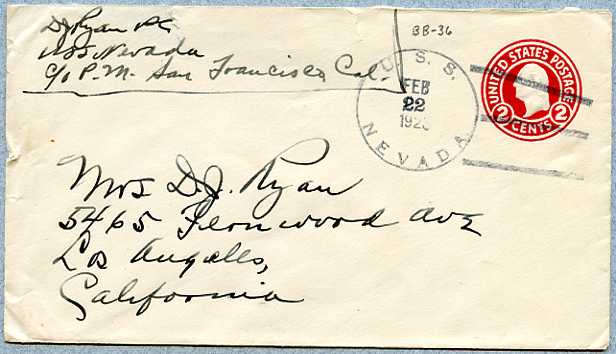 DJ Ryan
USS Nevada
c/o P.M. San Francisco, Cal.
BB-36
U. S. S.
FEB
22
NEVADA
UNITED STATES POSTAGE
2 CENTS 2
Mrs D.J. Ryan
5465 Fernwood Ave
Los Angelles,
California